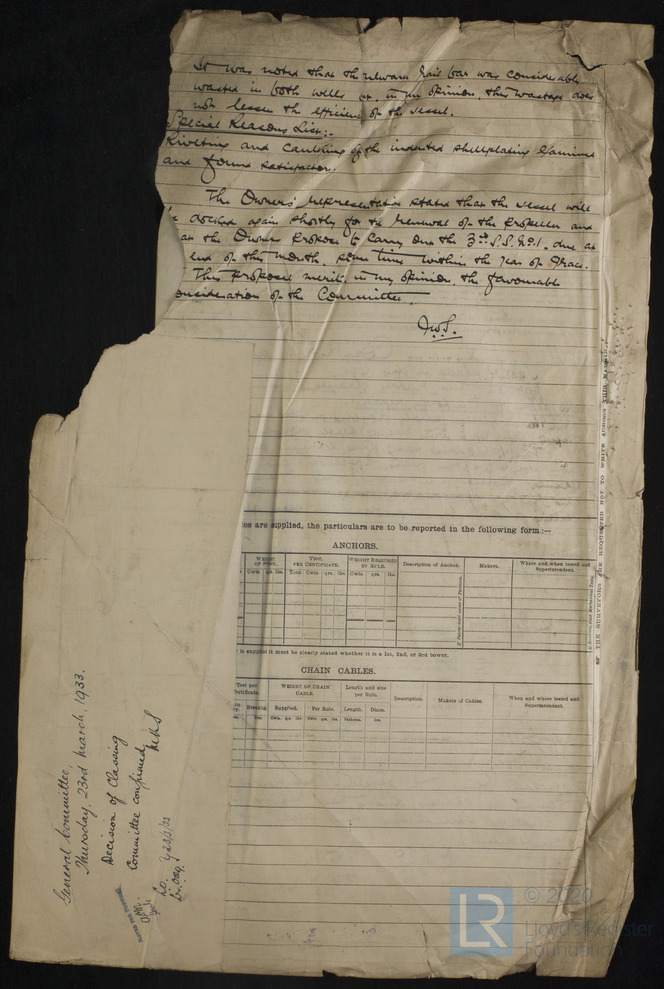 It was noted that the upward rail bar was considerably
wasted in both wells but, in my opinion, this wastage does
not lessen the efficiency of the vessel.
Special Reasons List:-
Riveting and caulking of the indented shellplating examined
and found satisfactory.
The Owners' representative stated that the vessel will
be docked again shortly for the renewal of the propeller and
as the Owners propose to carry out the 3rd S.S. No1. due at
end of this month, some time within the year of grace.
This proposal merits, in my opinion, the favourable
consideration of the Committee.
J.W.S.
es are supplied, the particulars are to be reported in the following form:—
ANCHORS.
WEIGHT
TEST,
PER CERTIFICATE.
WEIGHT REQUIRED
BY RULE.
Description of Anchor.
Makers.
Where and when tested and
Superintendent.
Cwts. qrs. lbs.
Tons Cwts. qrs. lbs.
Cwts. qrs. lbs.
is supplied it must be clearly stated whether it is a 1st, 2nd, or 3rd bower.
CHAIN CABLES.
Test per
Certificate.
WEIGHT OF CHAIN
CABLE.
Length and size
per Rule.
Description.
Makers of Cables.
When and where tested and
Superintendent.
Breaking
Supplied.
Per Rule.
Length.
Diam.
Tons.
Cwts. qrs. lbs
Cwts. qrs. lbs
Fathoms.
Ins.
THE SURVEYORS ARE REQUESTED NOT TO WRITE ACROSS THIS MARGIN.
General Committee,
Thursday, 23rd March, 1933.
Decision of Classing
Committee confirmed
© 2020
LR
Lloyd's Register
Foundation